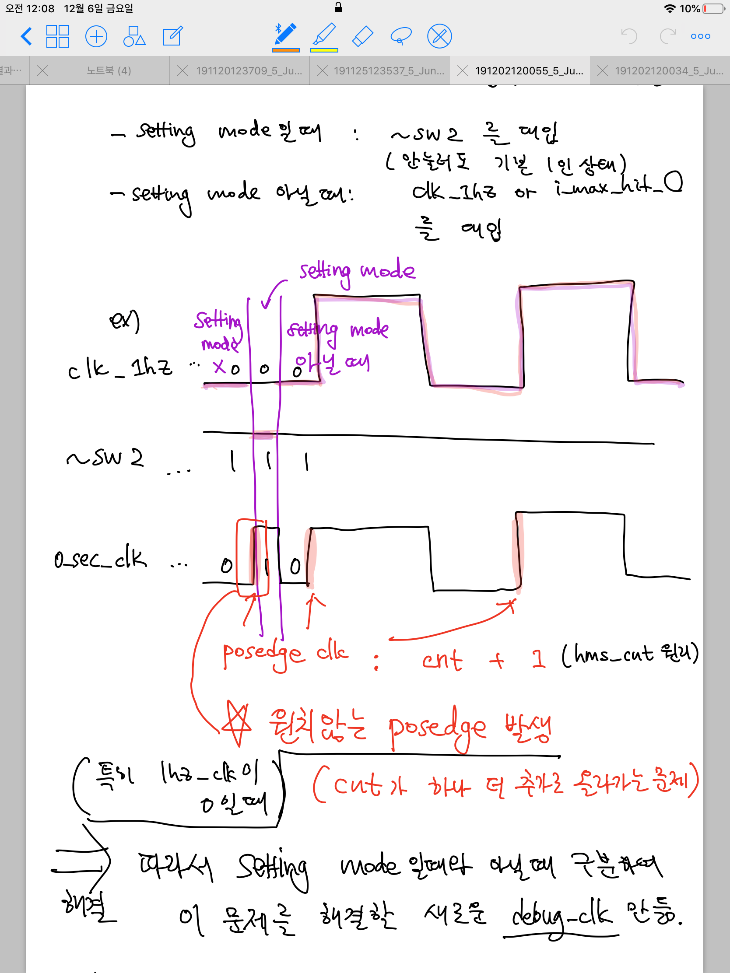 오전 12:08 12월 6일 금요일 10%
결과…
노트북 (4)
191120123709_5_Ju…
191125123537_5_Jun…
191202120055_5_Ju…
191202120034_5_Ju…
- setting mode 일때 : ~sw2 를 대입
(안눌러도 기본 1인 상태)
- setting mode 아닐때: clk_1hz or i_max_hit_0
를 대입
setting mode
ex)
setting mode x
setting mode 아닐 때
clk_1hz … 0 0 0
~sw2 … 1 1 1
o_sec_clk … 0 1 0
posedge clk : cnt + 1 (hms_cnt 원리)
☆ 원치않는 posedge 발생
(특히 1hz_clk이
0일때)
(cnt가 하나 더 추가로 올라가는 문제)
⇒ 해결
따라서 setting mode 일때와 아닐때 구분하여
이 문제를 해결할 새로운 debug_clk 만듦.